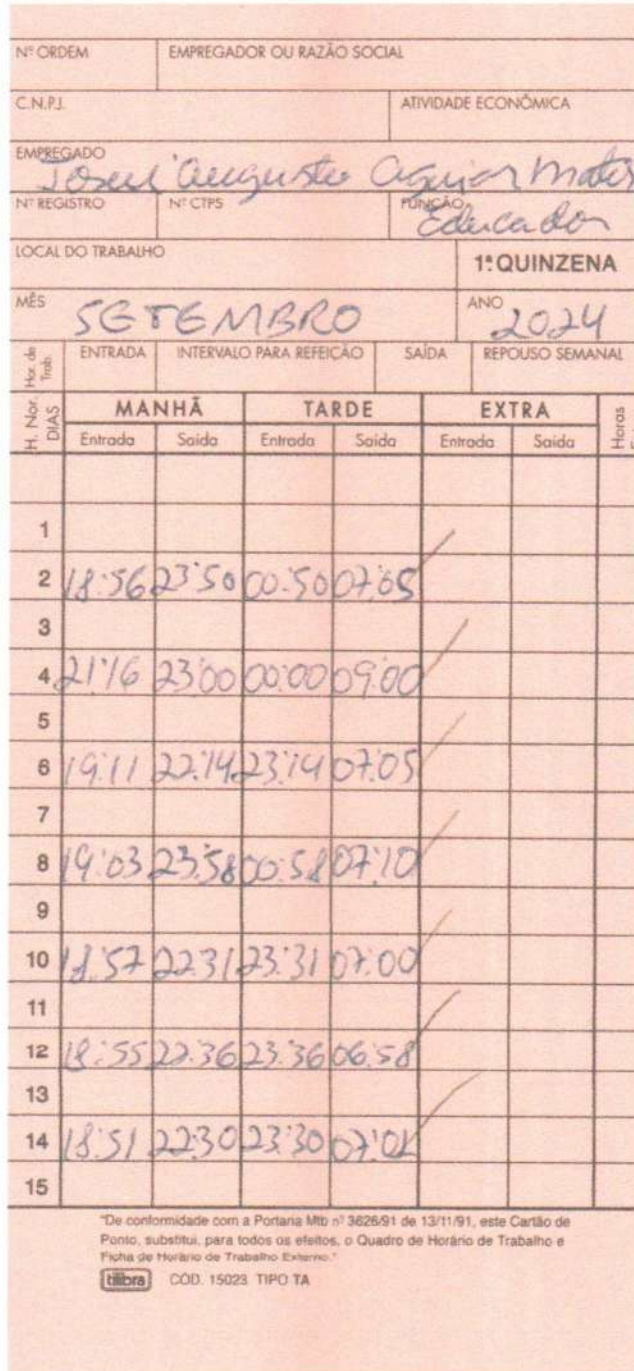 Nº ORDEM EMPREGADOR OU RAZÃO SOCIAL
C.N.P.J. ATIVIDADE ECONÔMICA
EMPREGADO
Augusto Aguiar Matos
Nº REGISTRO Nº CTPS FUNÇÃO
Educador
LOCAL DO TRABALHO 1ª QUINZENA
MÊS SETEMBRO ANO 2024
Hor. de Trab. ENTRADA INTERVALO PARA REFEIÇÃO SAÍDA REPOUSO SEMANAL
H. Nor. DIAS MANHÃ TARDE EXTRA Horas
Entrada Saída Entrada Saída Entrada Saída
1
2 18:56 23:50 00:50 07:05
3
4 21:16 23:00 00:00 09:00
5
6 19:11 22:14 23:14 07:05
7
8 19:03 23:58 00:58 07:10
9
10 18:57 22:31 23:31 07:00
11
12 18:55 22:36 23:36 06:58
13
14 18:51 22:30 23:30 07:02
15
"De conformidade com a Portaria Mtb nº 3626/91 de 13/11/91, este Cartão de
Ponto, substitui, para todos os efeitos, o Quadro de Horário de Trabalho e
Ficha de Horário de Trabalho Externo."
tilibra CÓD. 15023 TIPO TA